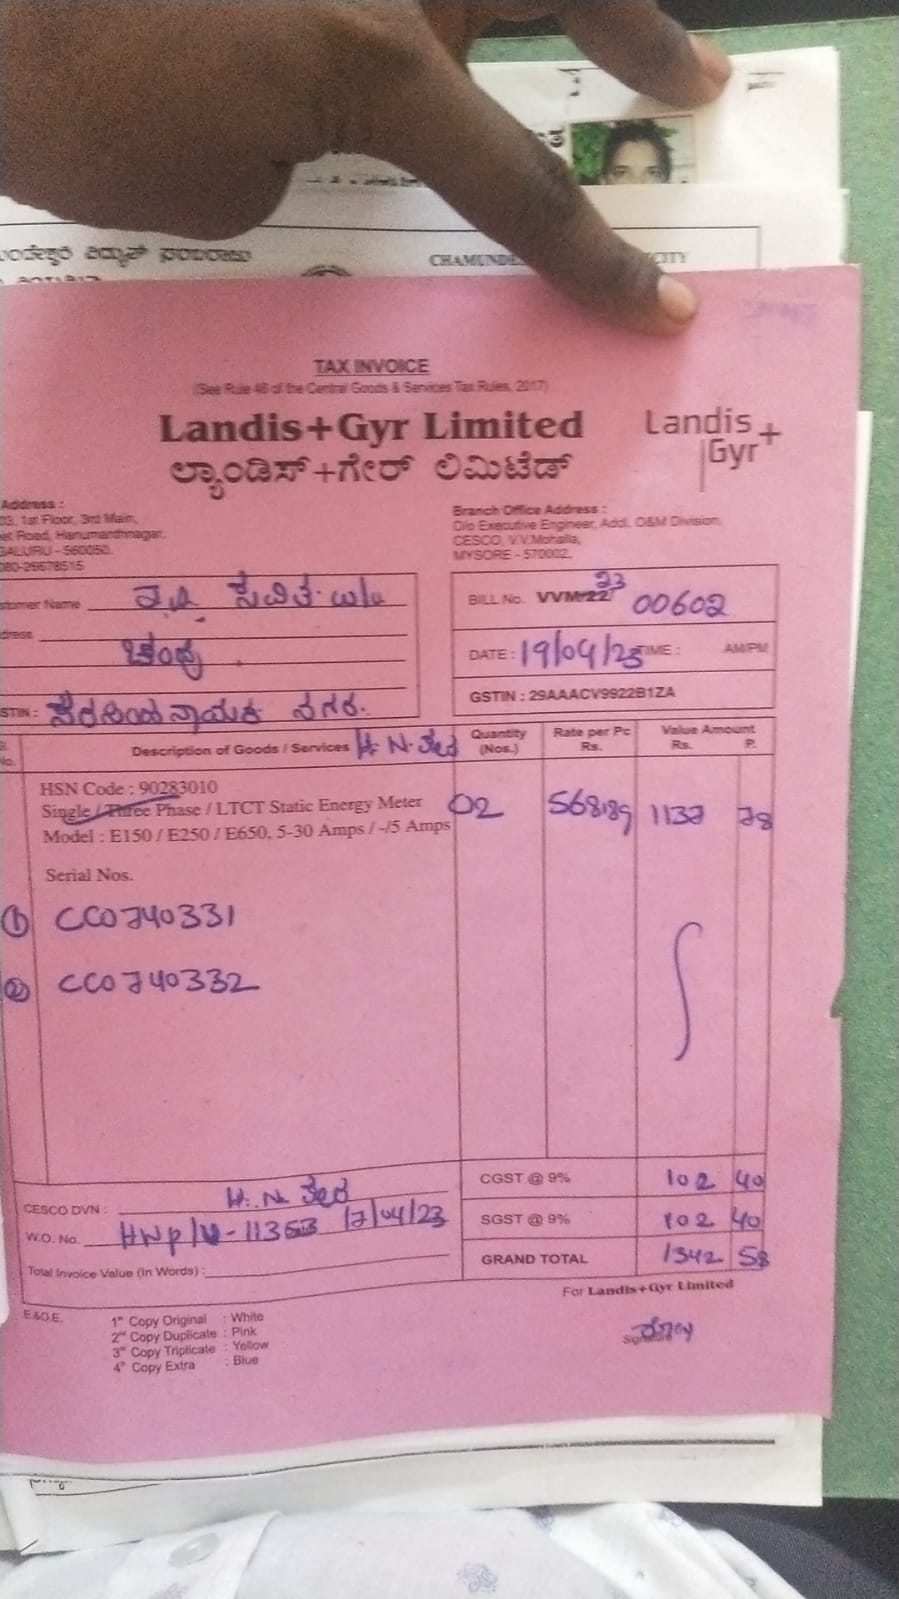 CHAMUNDE
CITY
TAX INVOICE
(See Rule 46 of the Central Goods & Services Tax Rules, 2017)
Landis+Gyr Limited
Landis+
Gyr
ಲ್ಯಾಂಡಿಸ್+ಗೇರ್ ಲಿಮಿಟೆಡ್
Address :
03, 1st Floor, 3rd Main,
Road, Hanumanthnagar,
GALURU - 560050.
080-26678515
Branch Office Address :
O/o Executive Engineer, Addl. O&M Division,
CESCO, V.V.Mohalla,
MYSORE - 570002.
stomer Name
BILL No. VVM-22 23 00602
dress
DATE : 19/04/23 TIME : AM/PM
STIN : ನಗರ.
GSTIN : 29AAACV9922B1ZA
No.
Description of Goods / Services
Quantity (Nos.)
Rate per Pc Rs.
Value Amount Rs. P.
HSN Code : 90283010
Single / Three Phase / LTCT Static Energy Meter
Model : E150 / E250 / E650, 5-30 Amps / -/5 Amps
02 568.89 1137 78
Serial Nos.
① CC0740331
② CC0740332
CGST @ 9% 102 40
SGST @ 9% 102 40
GRAND TOTAL 1342 58
CESCO DVN :
W.O. No. 17/04/23
Total Invoice Value (In Words) :
For Landis+Gyr Limited
E&O.E.
1st Copy Original : White
2nd Copy Duplicate : Pink
3rd Copy Triplicate : Yellow
4th Copy Extra : Blue
Signature